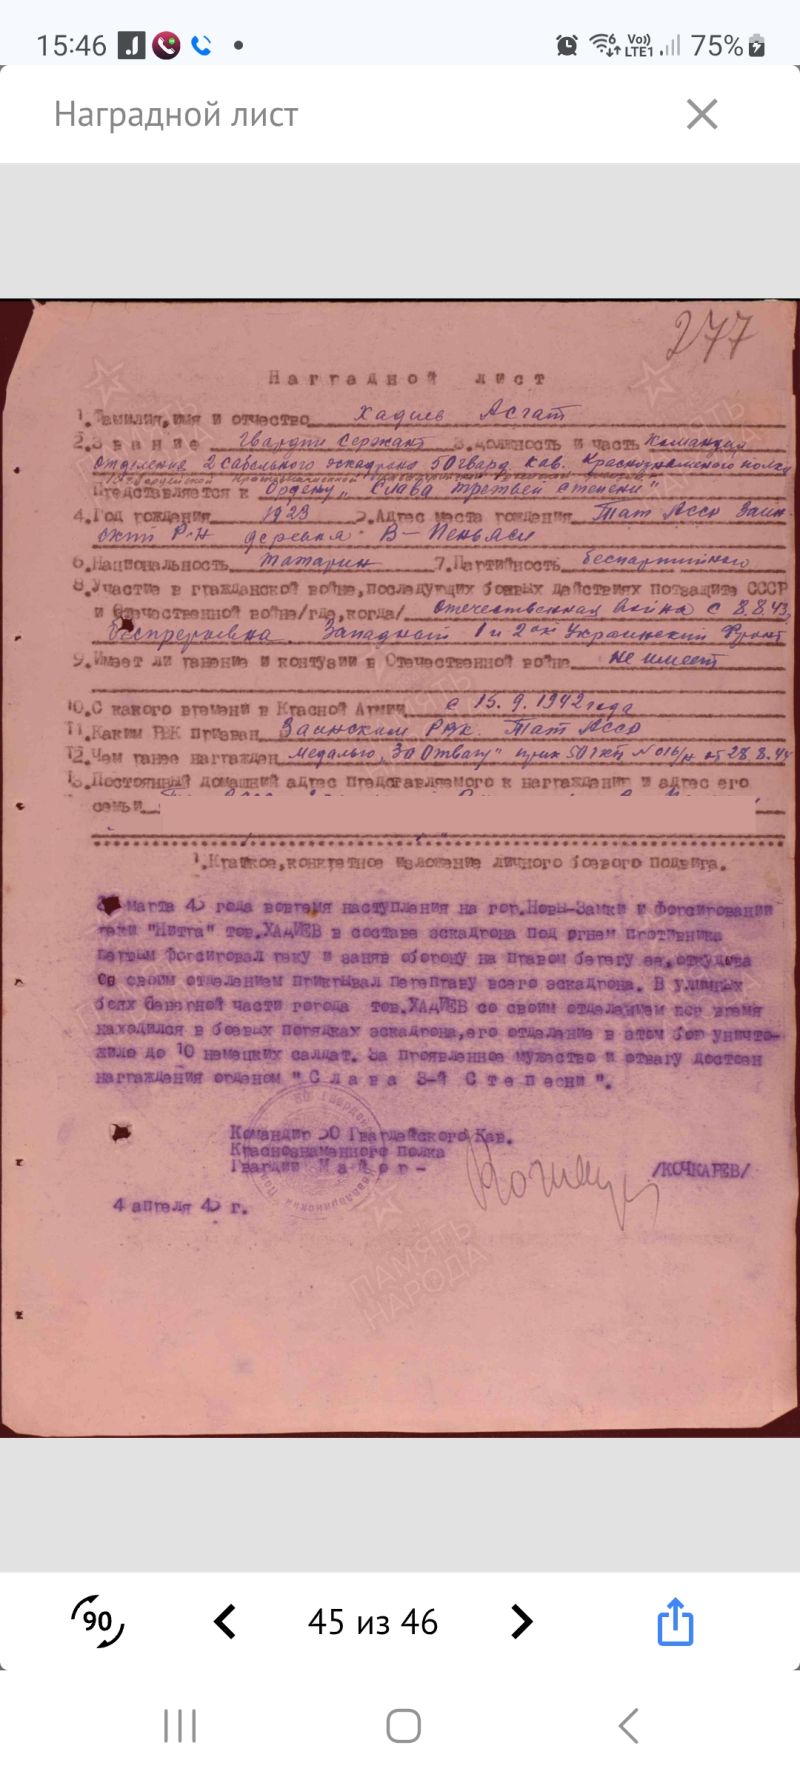 15:46 Vo)) LTE1 75%
Наградной лист
277
Наградной лист
1. Фамилия, имя и отчество Хадиев Асгат
2. Звание Гвардии Сержант 3. должность и часть Командир
отделения 2 сабельного эскадрона 50 гвард. кав. Краснознаменного полка
Представляется к Ордену „Слава третьей степени"
4. Год рождения 1923 5. Адрес места рождения Тат АССР Заин-
ский Р-н деревня В-
6. Национальность татарин 7. Партийность беспартийного
8. Участие в гражданской войне, последующих боевых действиях по защите СССР
и Отечественной войне/где, когда/ отечественная война с 8.8.43,
Западный 1 и 2 ой Украинский Фронт
9. Имеет ли ранение и контузии в Отечественной войне не имеет
10. С какого времени в Красной Армии с 15.9.1942 года
11. Каким РВК призван Заинским РВК. Тат АССР
12. Чем ранее награжден медалью „За Отвагу" прик 50 гкп № 016/н от 28.8.44
13. Постоянный домашний адрес представляемого к награждению и адрес его
семьи
1. Краткое, конкретное изложение личного боевого подвига.
марта 45 года вовремя наступления на гор. Новы-Замки и форсировании
реки "Нитра" тов. ХАДИЕВ в составе эскадрона под огнем противника
первым форсировал реку и заняв оборону на правом берегу ее, откудова
со своим отделением прикрывал переправу всего эскадрона. В уличных
боях северной части города тов. ХАДИЕВ со своим отделением все время
находился в боевых порядках эскадрона, его отделение в этом бою уничто-
жило до 10 немецких солдат. За проявленное мужество и отвагу достоен
награждения орденом "Слава 3-й Степени".
Командир 50 Гвардейского Кав.
Краснознаменного Полка
Гвардии Майор-
/КОЧКАРЕВ/
4 апреля 45 г.
ПАМЯТЬ НАРОДА
90 45 из 46